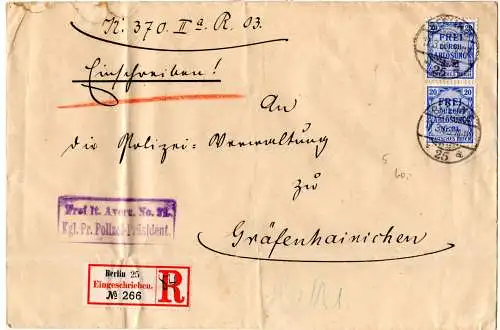 K. 370 IIa R. 03.
Einschreiben!
An
die Polizei-Verwaltung
zu
Gräfenhainichen
20 20
FREI
DURCH
ABLÖSUNG
20 20
FREI
DURCH
ABLÖSUNG
25
25 a
Frei lt. Avers. No. 21.
Kgl. Pr. Polizei-Präsident.
Berlin 25
Eingeschrieben.
№ 266
R